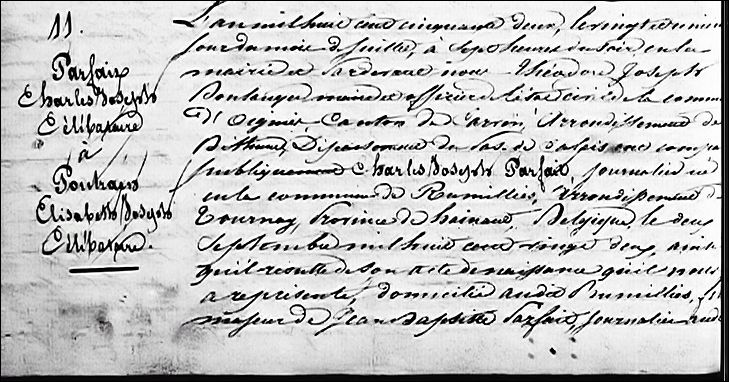 11.
Parfait
Charles Joseph
Célibataire
à
Poutrain
Elisabeth Joseph
Célibataire.
L'an mil huit cent cinquante deux, le vingt et unième
jour du mois de juillet, à sept heures du soir, en la
mairie et par devant nous Théodore Joseph
Boulanger maire et officier de l'état civil de la commune
d'Oignies, Canton de Carvin, Arrondissement de
Béthune, Département du Pas de Calais ont comparu
publiquement Charles Joseph Parfait, journalier né
en la commune de Rumillies, Arrondissement de
Tournay, Province de hainaut, Belgique, le deux
Septembre mil huit cent vingt deux, ainsi
qu'il résulte de son acte de naissance qu'il nous
a représenté, domicilié audit Rumillies, fils
majeur de Jean Baptiste Parfait, journalier